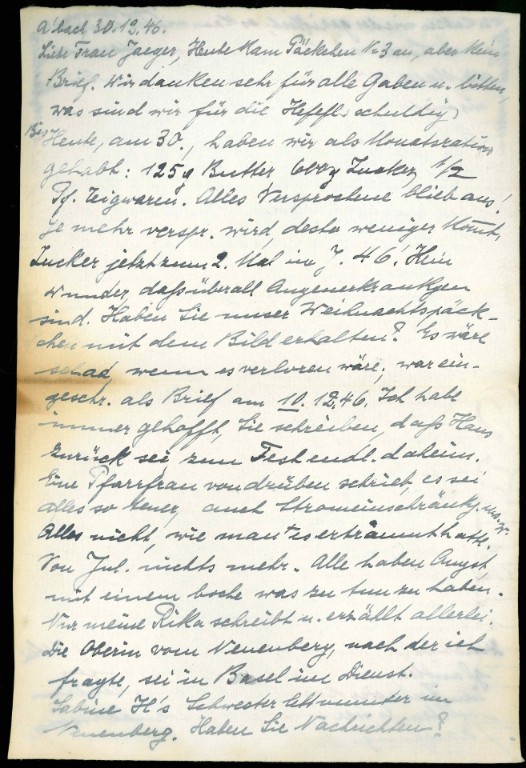 A'bach 30.12.46.
Liebe Frau Jaeger, Heute kam Päckchen Nr 3 an, aber kein
Brief. Wir danken sehr für alle Gaben u. bitten,
was sind wir für die Hefefl. schuldig?
Bis Heute, am 30., haben wir als Monatsration
gehabt: 125 g Butter 600 g Zucker, 1/2
Pf. Teigwaren. Alles Versprochene blieb aus!
Je mehr verspr. wird, desto weniger kommt,
Zucker jetzt zum 2. Mal in J. 46! Kein
Wunder, daß überall Augenerkrankgen
sind. Haben Sie unser Weihnachtspäck-
chen mit dem Bild erhalten? Es wäre
schad wenn es verloren wäre; war ein-
geschr. als Brief am 10.12.46. Ich habe
immer gehofft, Sie schreiben, daß Hans
zurück sei, zum Fest endl. daheim.
Eine Pfarrfrau von drüben schrieb, es sei
alles so teuer, auch Stromeinschränkg. usw.
Alles nicht, wie man's erträumt hatte.
Von Jul. nichts mehr. Alle haben Angst,
mit einem boche was zu tun zu haben.
Nur meine Rika schreibt u. erzällt allerlei.
Die Oberin vom Neuenberg, nach der ich
fragte, sei in Basel im Dienst.
Sabine H's Schwester im
Neuenberg. Haben Sie Nachrichten?